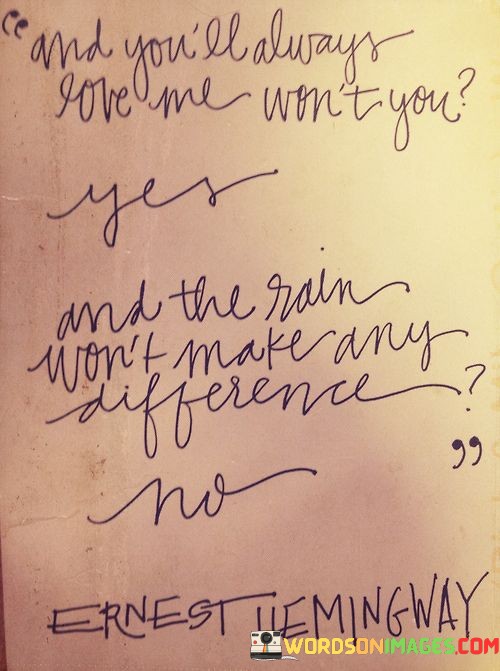 “and you'll always
love me won't you?
yes
and the rain
won't make any
difference?
no”
ERNEST HEMINGWAY
WORDSONIMAGES.COM